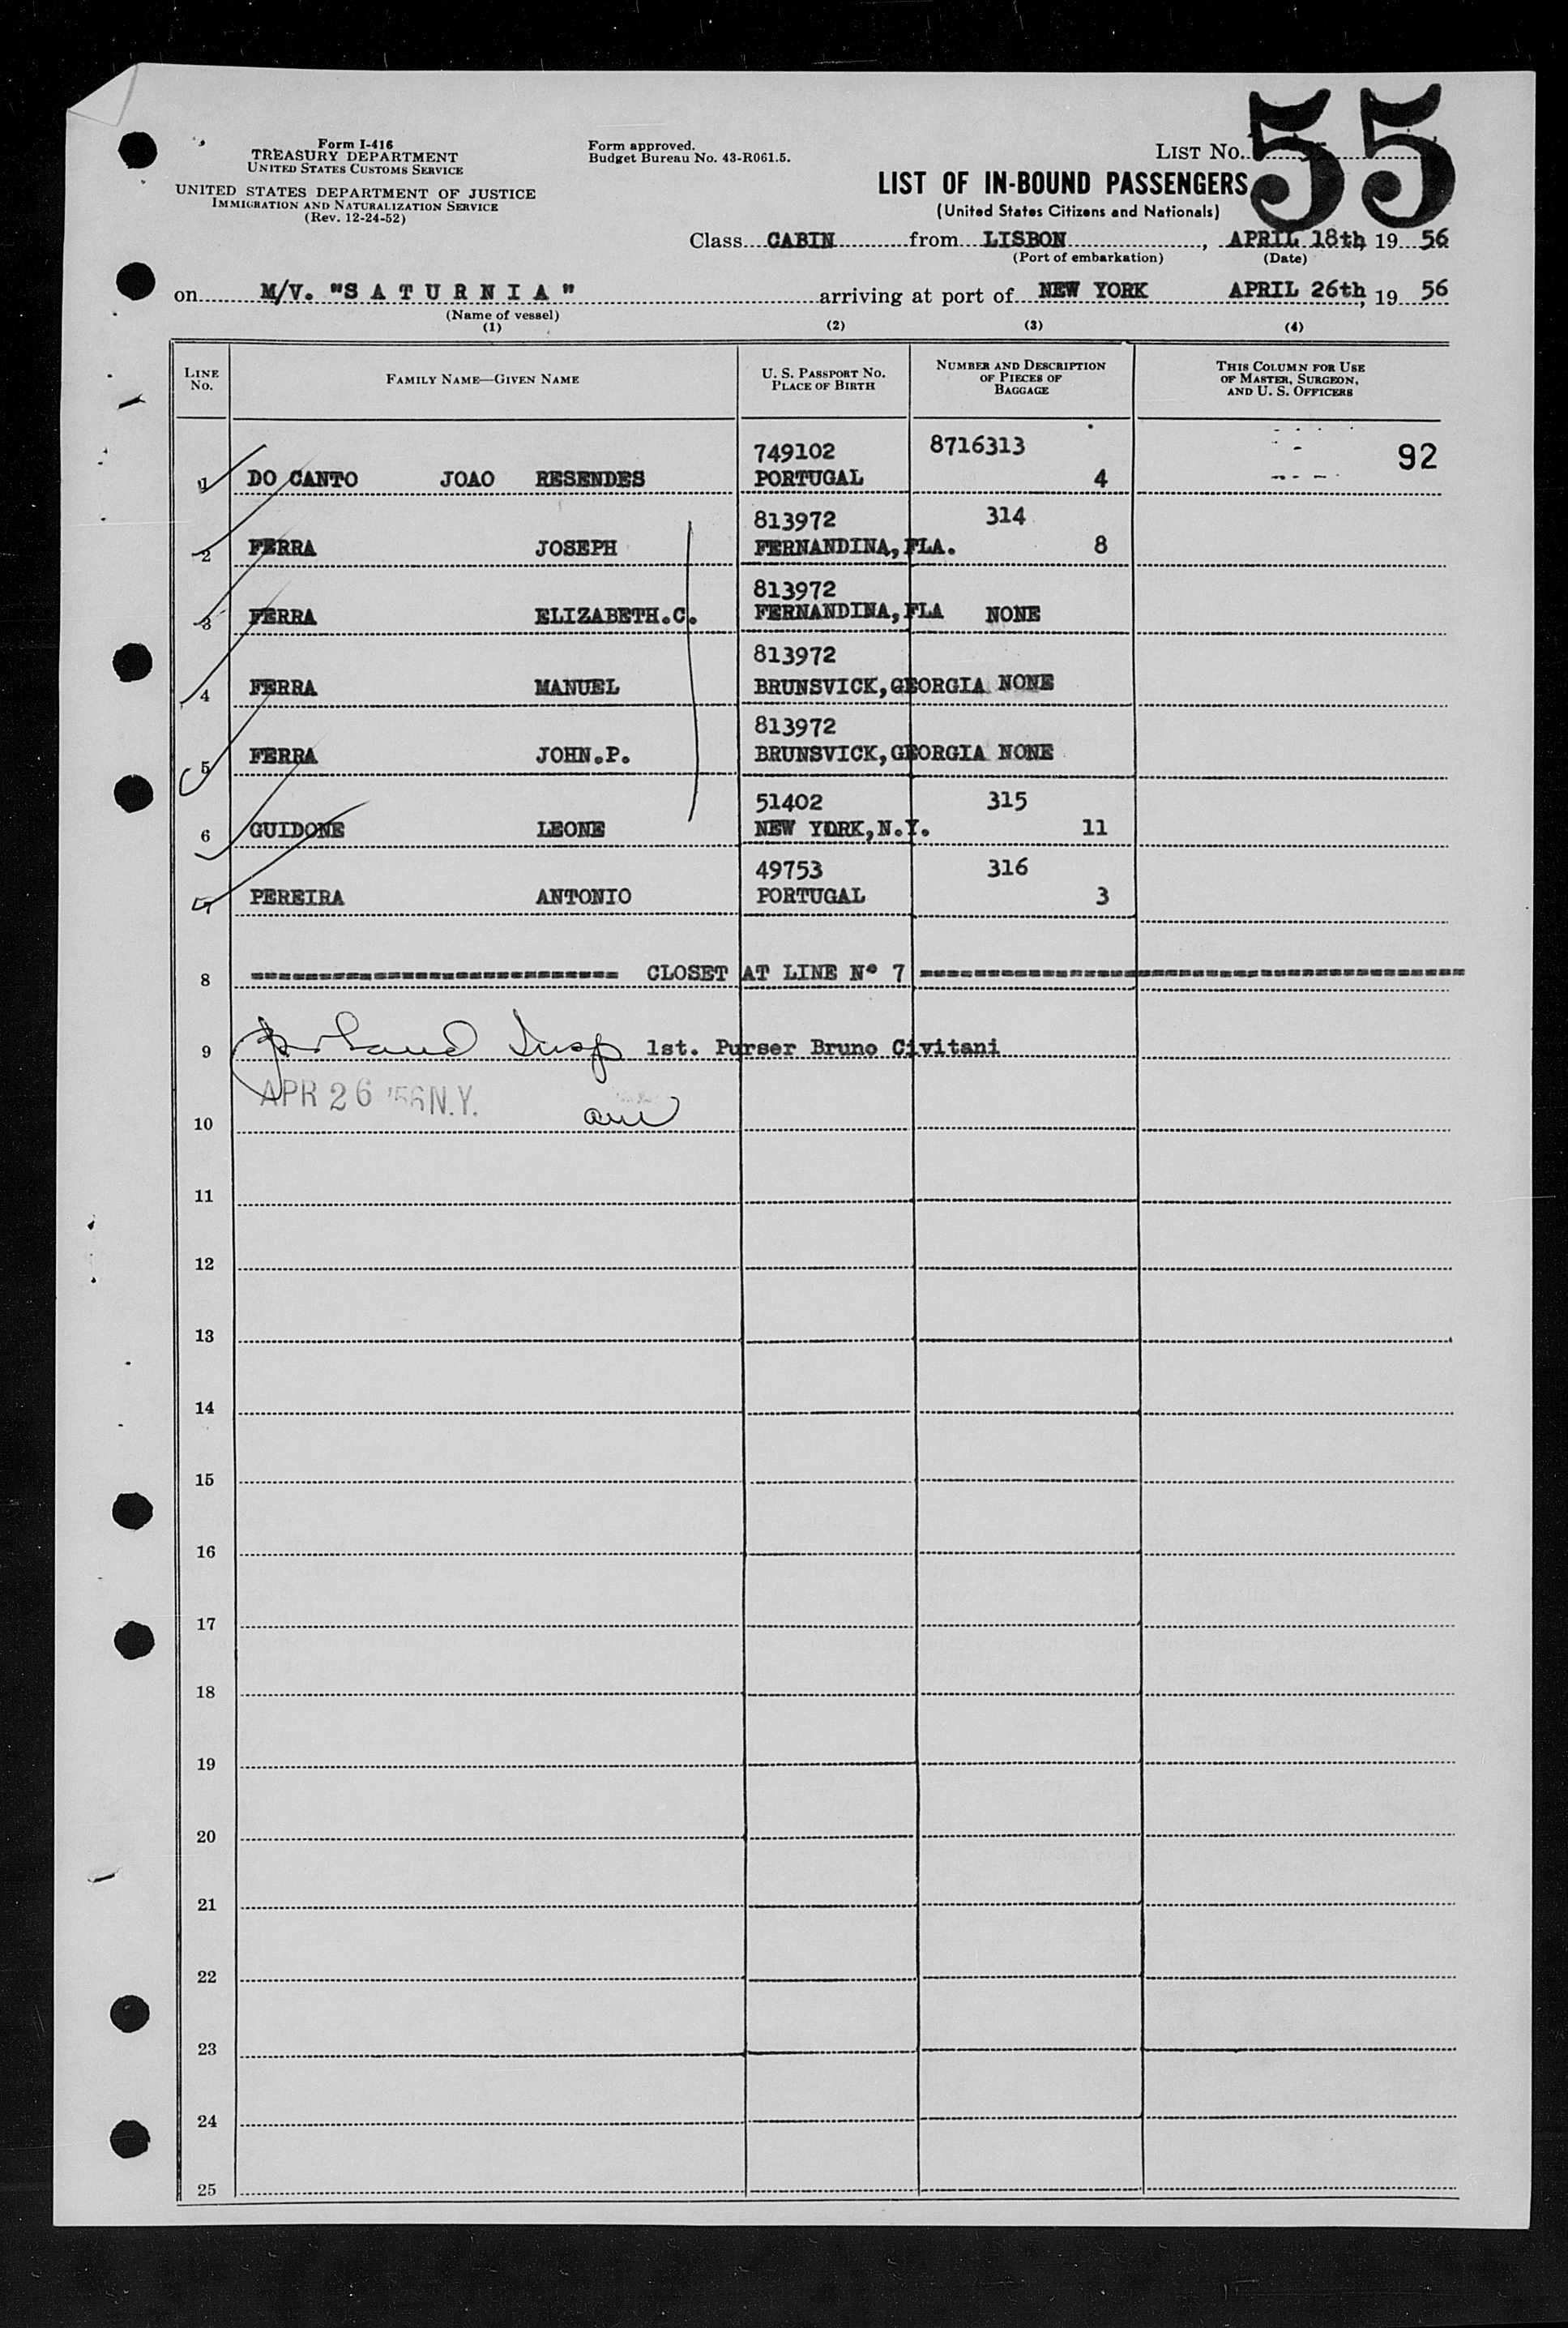 Form I-416
TREASURY DEPARTMENT
UNITED STATES CUSTOMS SERVICE
UNITED STATES DEPARTMENT OF JUSTICE
IMMIGRATION AND NATURALIZATION SERVICE
(Rev. 12-24-52)
Form approved.
Budget Bureau No. 43-R061.5.
LIST NO. 55
LIST OF IN-BOUND PASSENGERS
(United States Citizens and Nationals)
Class CABIN from LISBON, APRIL 18th, 19 56
(Port of embarkation) (Date)
on M/V. "S A T U R N I A" arriving at port of NEW YORK APRIL 26th, 19 56
(Name of vessel)
(1) (2) (3) (4)
LINE No. FAMILY NAME—GIVEN NAME U. S. PASSPORT NO. PLACE OF BIRTH NUMBER AND DESCRIPTION OF PIECES OF BAGGAGE THIS COLUMN FOR USE OF MASTER, SURGEON, AND U. S. OFFICERS
749102 8716313 92
1 DO CANTO JOAO RESENDES PORTUGAL 4
813972 314
2 FERRA JOSEPH FERNANDINA, FLA. 8
813972
3 FERRA ELIZABETH.C. FERNANDINA, FLA NONE
813972
4 FERRA MANUEL BRUNSVICK, GEORGIA NONE
813972
5 FERRA JOHN.P. BRUNSVICK, GEORGIA NONE
51402 315
6 GUIDONE LEONE NEW YORK, N.Y. 11
49753 316
7 PEREIRA ANTONIO PORTUGAL 3
8 CLOSET AT LINE Nº 7
9 Insp 1st. Purser Bruno Civitani
APR 26 '56 N.Y.
10
11
12
13
14
15
16
17
18
19
20
21
22
23
24
25